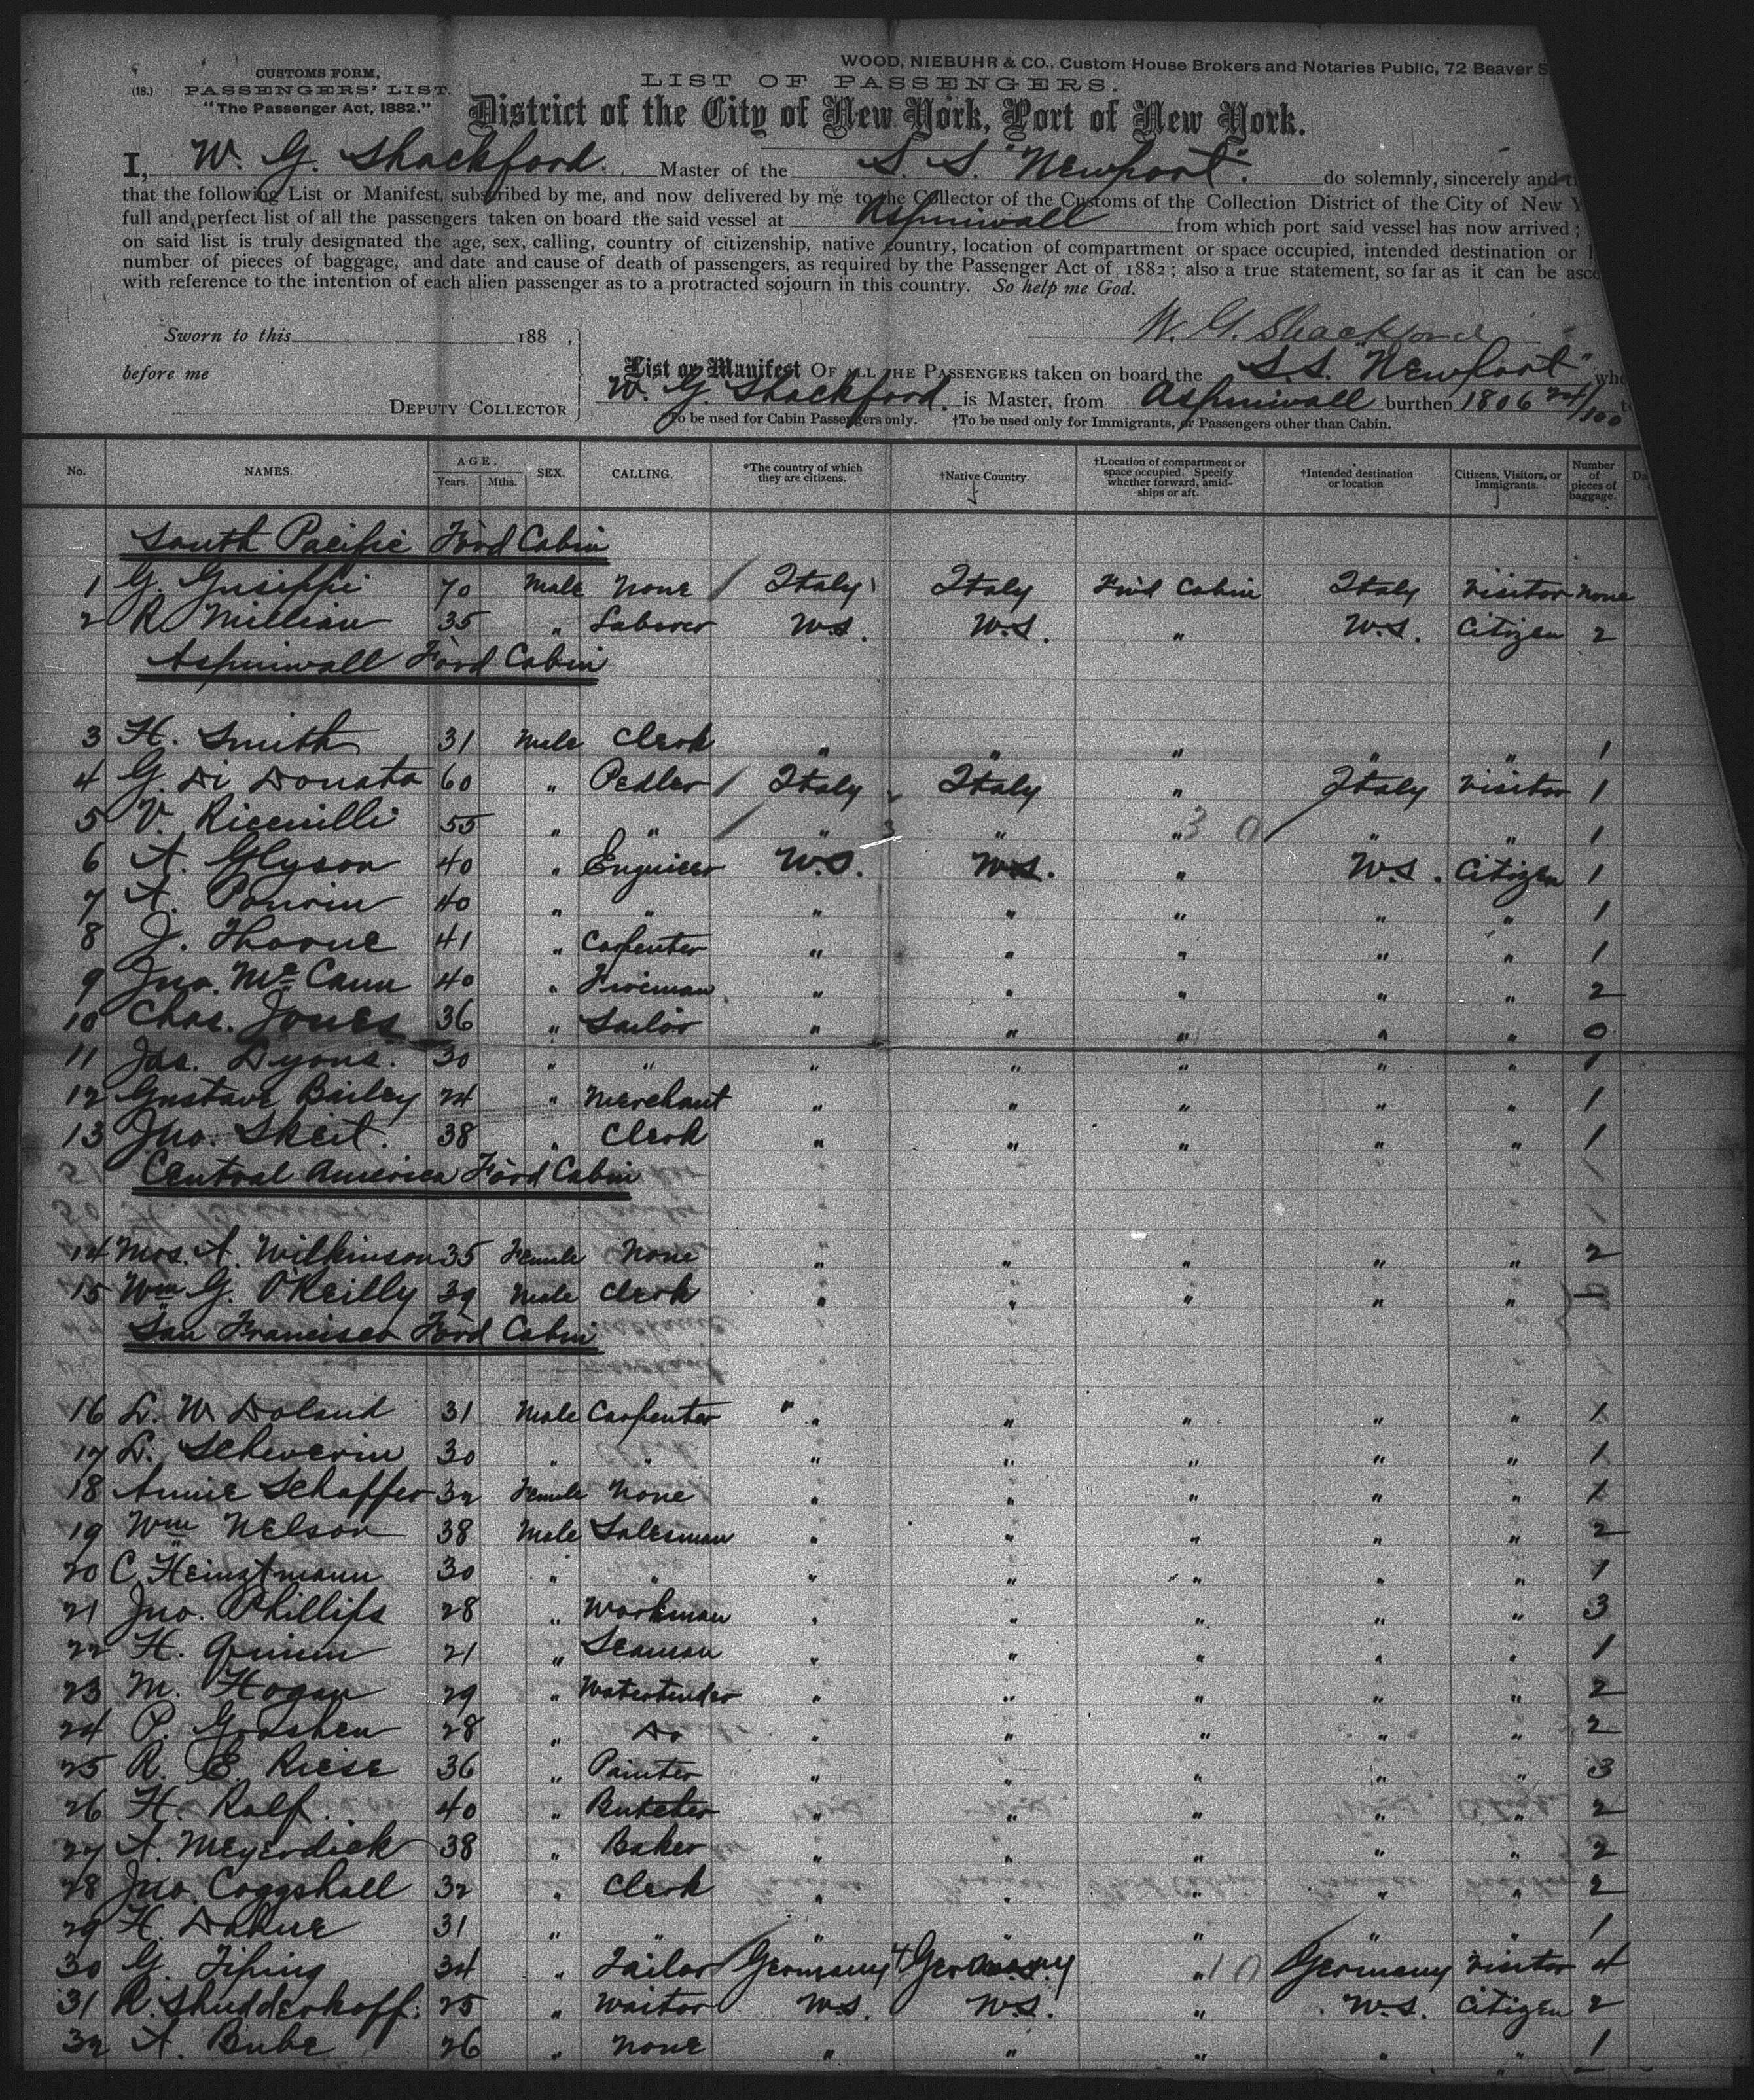 WOOD, NIEBUHR & CO., Custom House Brokers and Notaries Public, 72 Beaver S
CUSTOMS FORM,
(18.) PASSENGERS' LIST.
"The Passenger Act, 1882."
LIST OF PASSENGERS.
District of the City of New York, Port of New York.
I, W. G. Shackford. Master of the S. S. "Newport". do solemnly, sincerely and
that the following List or Manifest, subscribed by me, and now delivered by me to the Collector of the Customs of the Collection District of the City of New Y
full and perfect list of all the passengers taken on board the said vessel at Aspinwall from which port said vessel has now arrived;
on said list is truly designated the age, sex, calling, country of citizenship, native country, location of compartment or space occupied, intended destination or
number of pieces of baggage, and date and cause of death of passengers, as required by the Passenger Act of 1882; also a true statement, so far as it can be asce
with reference to the intention of each alien passenger as to a protracted sojourn in this country. So help me God.
W. G. Shackford
Sworn to this 188 ,
before me
DEPUTY COLLECTOR
List or Manifest OF ALL THE PASSENGERS taken on board the S.S. "Newport" whe
W. G. Shackford. is Master, from Aspinwall burthen 1806 24/100 t
*To be used for Cabin Passengers only. †To be used only for Immigrants, or Passengers other than Cabin.
No. NAMES. AGE. Years. Mths. SEX. CALLING. *The country of which they are citizens. †Native Country. †Location of compartment or space occupied. Specify whether forward, amidships or aft. †Intended destination or location Citizens, Visitors, or Immigrants. Number of pieces of baggage. Da
South Pacific Fòrd Cabin
1 G. Guseppi 70 Male None Italy Italy Fwd Cabin Italy Visitor None
2 R Millian 35 " Laborer U.S. U.S. " U.S. Citizen 2
Aspinwall Fòrd Cabin
3 H. Smith 31 Male Clerk " " " " " 1
4 G. Di Donato 60 " Pedler Italy Italy " Italy Visitor 1
5 V. Riccuilli 55 " " " " " 30 " " 1
6 A. Glyson 40 " Engineer U.S. U.S. " U.S. Citizen 1
7 A. 40 " " " " " " " 1
8 J. Thorne 41 " Carpenter " " " " " 1
9 Jno. McCann 40 " Fireman " " " " " 2
10 Chas. Jones 36 " Sailor " " " " " 0
11 Jas. Lyons. 30 " " " " " " " 1
12 Gustave Bailey 24 " Merchant " " " " " 1
13 Jno. Skeit. 38 " Clerk " " " " " 1
Central America Fòrd Cabin
14 Mrs. A. Wilkinson 35 Female None " " " " " 2
15 Wm G. O'Reilly 39 Male Clerk " " " " "
San Francisco Fòrd Cabin
16 L. W Doland 31 Male Carpenter " " " " " 1
17 L. Scheverin 30 " " " " " " " 1
18 Annie Schaffer 32 Female None " " " " " 1
19 Wm Nelson 38 Male Salesman " " " " " 2
20 C. Heinztmann 30 " " " " " " " 1
21 Jno. Phillips 28 " Workman " " " " " 3
22 H. Quinn 21 " Seaman " " " " " 1
23 M. Hogan 29 " Watertender " " " " " 2
24 P. Goashen 28 " Do " " " " " 2
25 R. E. Riese 36 " Painter " " " " " 3
26 H. Ralf. 40 " Butcher " " " " " 2
27 A. Meyerdick 38 " Baker " " " " " 2
28 Jno. Coggshall 32 " Clerk " " " " " 2
29 H. Dahne 31 " " " " " " " 1
30 G. Tiping 34 " Tailor Germany Germany " 10 Germany Visitor 4
31 R. Shudderkoff. 25 " Waiter U.S. U.S. " U.S. Citizen 2
32 A. Bube 26 " None " " " " " 1